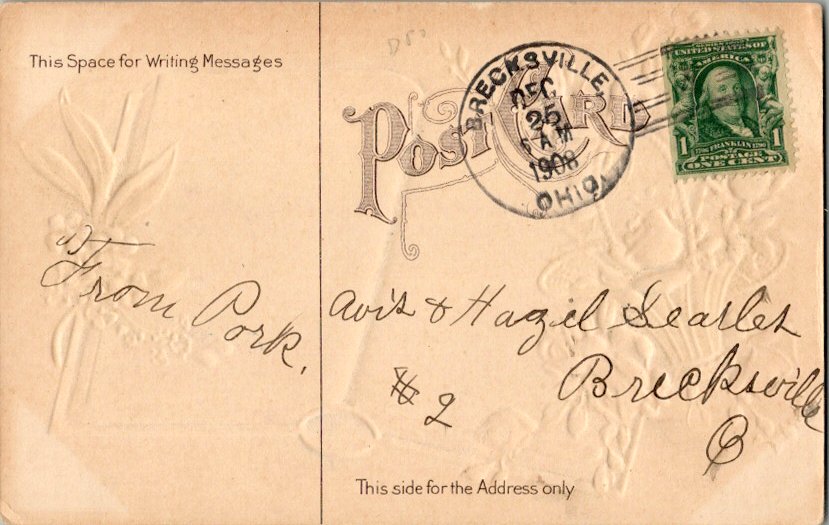 This Space for Writing Messages
POST CARD
BRECKSVILLE,
DEC
25
6 AM
1908
OHIO
SERIES 1902
UNITED STATES OF
AMERICA
1
1706 FRANKLIN 1790
1
POSTAGE
ONE CENT
From Pork.
Avis & Hazel Searles
# 2
Brecksville
O
This side for the Address only